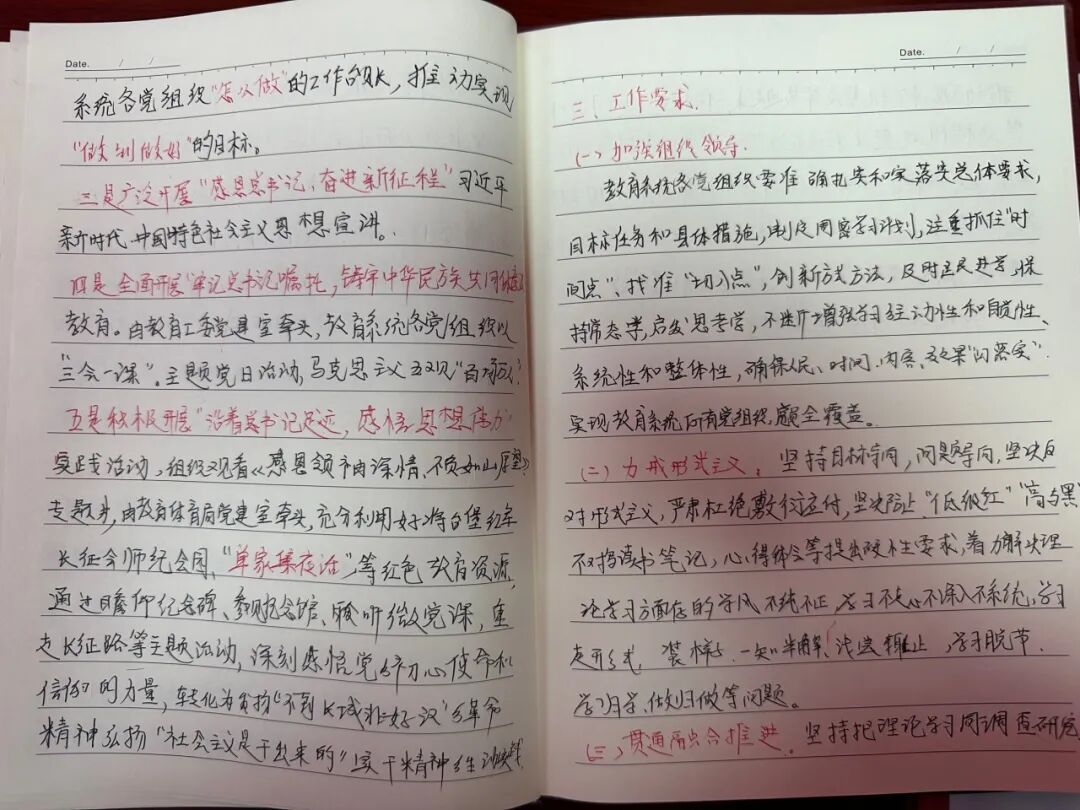 Date. / /
系统各党组织“怎么做”的工作台账，推动实现
“做到做好”的目标。
三是广泛开展“感恩总书记、奋进新征程”习近平
新时代中国特色社会主义思想宣讲。
四是全面开展“牢记总书记嘱托，铸牢中华民族共同体意识
教育。由教育工委党建室牵头，教育系统各党组织以
“三会一课”、主题党日活动，马克思主义五观“百场
五是积极开展“沿着总书记足迹，感悟思想伟力”
实践活动，组织观看《感恩领袖深情、不负如山厚望》
专题片，由教育体育局党建室牵头，充分利用好将台堡红军
长征会师纪念园、“单家集夜话”等红色教育资源，
通过瞻仰纪念碑、参观纪念馆、聆听微党课，重
走长征路等主题活动，深刻感悟党的初心使命和
信仰的力量，转化为发扬“不到长城非好汉”的革命
精神弘扬“社会主义是干出来的”实干精神的生动实践
Date. / /
三、工作要求.
(一) 加强组织领导.
教育系统各党组织要准确扎实和落实总体要求，
目标任务和具体措施，制定周密学习计划，注重抓住“时
间点”、找准“切入点”，创新方式方法，及时跟进学，保
持常态学，启发思考学，不断增强学习主动性和自觉性、
系统性和整体性，确保人员、时间、内容、效果“四落实”.
实现教育系统所有党组织、党员全覆盖。
(二) 力戒形式主义。坚持目标导向，问题导向，坚决反
对形式主义，严肃杜绝敷衍应付，坚决防止“低级红”“高级黑”
不对读书笔记，心得体会等提出硬性要求，着力解决理
论学习方面存的学风不纯不正，学习不走心不深入不系统，学习
走形式，装样子，一知半解、浅尝辄止，学习脱节.
学归学、做归做等问题。
(三) 贯通融合推进。坚持把理论学习同调查研究